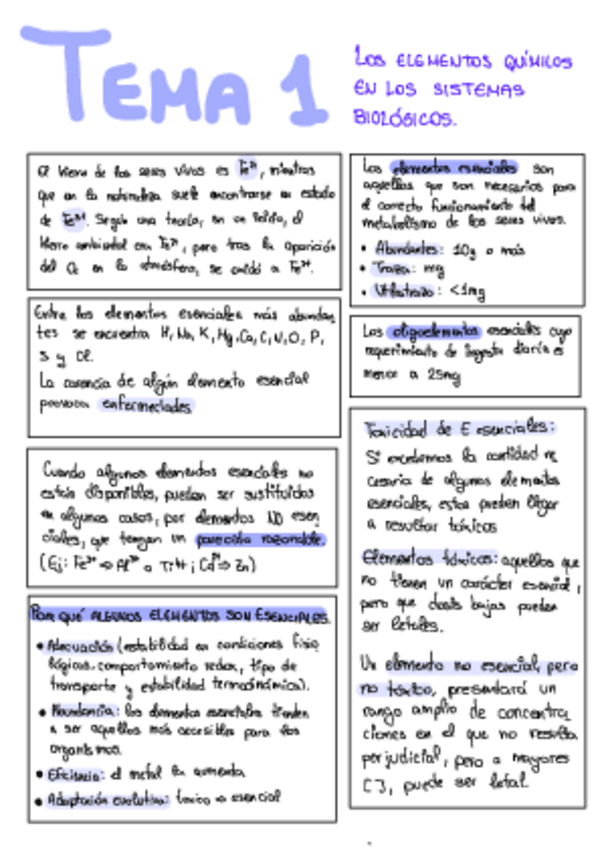 TEMA 1
LOS ELEMENTOS QUÍMICOS
EN LOS SISTEMAS
BIOLÓGICOS.
El hierro de los seres vivos es Fe²⁺, mientras
que en la naturaleza suele encontrarse en estado
de Fe³⁺. Según una teoría, en un inicio, el
hierro ambiental era Fe²⁺, pero tras la aparición
del O₂ en la atmósfera, se oxidó a Fe³⁺.
Entre los elementos esenciales más abundan
tes se encuentra H, Na, K, Mg, Ca, C, N, O, P,
S y Cl.
La carencia de algún elemento esencial
provoca enfermedades
Cuando algunos elementos esenciales no
están disponibles, pueden ser sustituidos
en algunos casos, por elementos NO esen
ciales, que tengan un parecido razonable.
(Ej: Fe³⁺ ⇒ Al³⁺ o ; ⇒ Zn)
POR QUÉ ALGUNOS ELEMENTOS SON ESENCIALES.
• Adecuación (estabilidad en condiciones fisio
lógicas, comportamiento redox, tipo de
transporte y estabilidad termodinámica).
• Abundancia: los elementos esenciales tienden
a ser aquellos más accesibles para los
organismos.
• Eficiencia: el metal la aumenta
• Adaptación evolutiva: toxico ⇒ esencial
Los elementos esenciales son
aquellos que son necesarios para
el correcto funcionamiento del
metabolismo de los seres vivos.
• Abundantes: 10g o más
• Traza: mg
• Ultratraza: <1mg
Los oligoelementos esenciales cuyo
requerimiento de ingesta diaria es
menor a 25mg
Toxicidad de E esenciales:
Si excedemos la cantidad ne
cesaria de algunos elementos
esenciales, estos pueden llegar
a resultar tóxicos
Elementos tóxicos: aquellos que
no tienen un carácter esencial,
pero que dosis bajas pueden
ser letales.
Un elemento no esencial, pero
no tóxico, presentará un
rango amplio de concentra
ciones en el que no resulta
perjudicial, pero a mayores
[ ], puede ser letal.